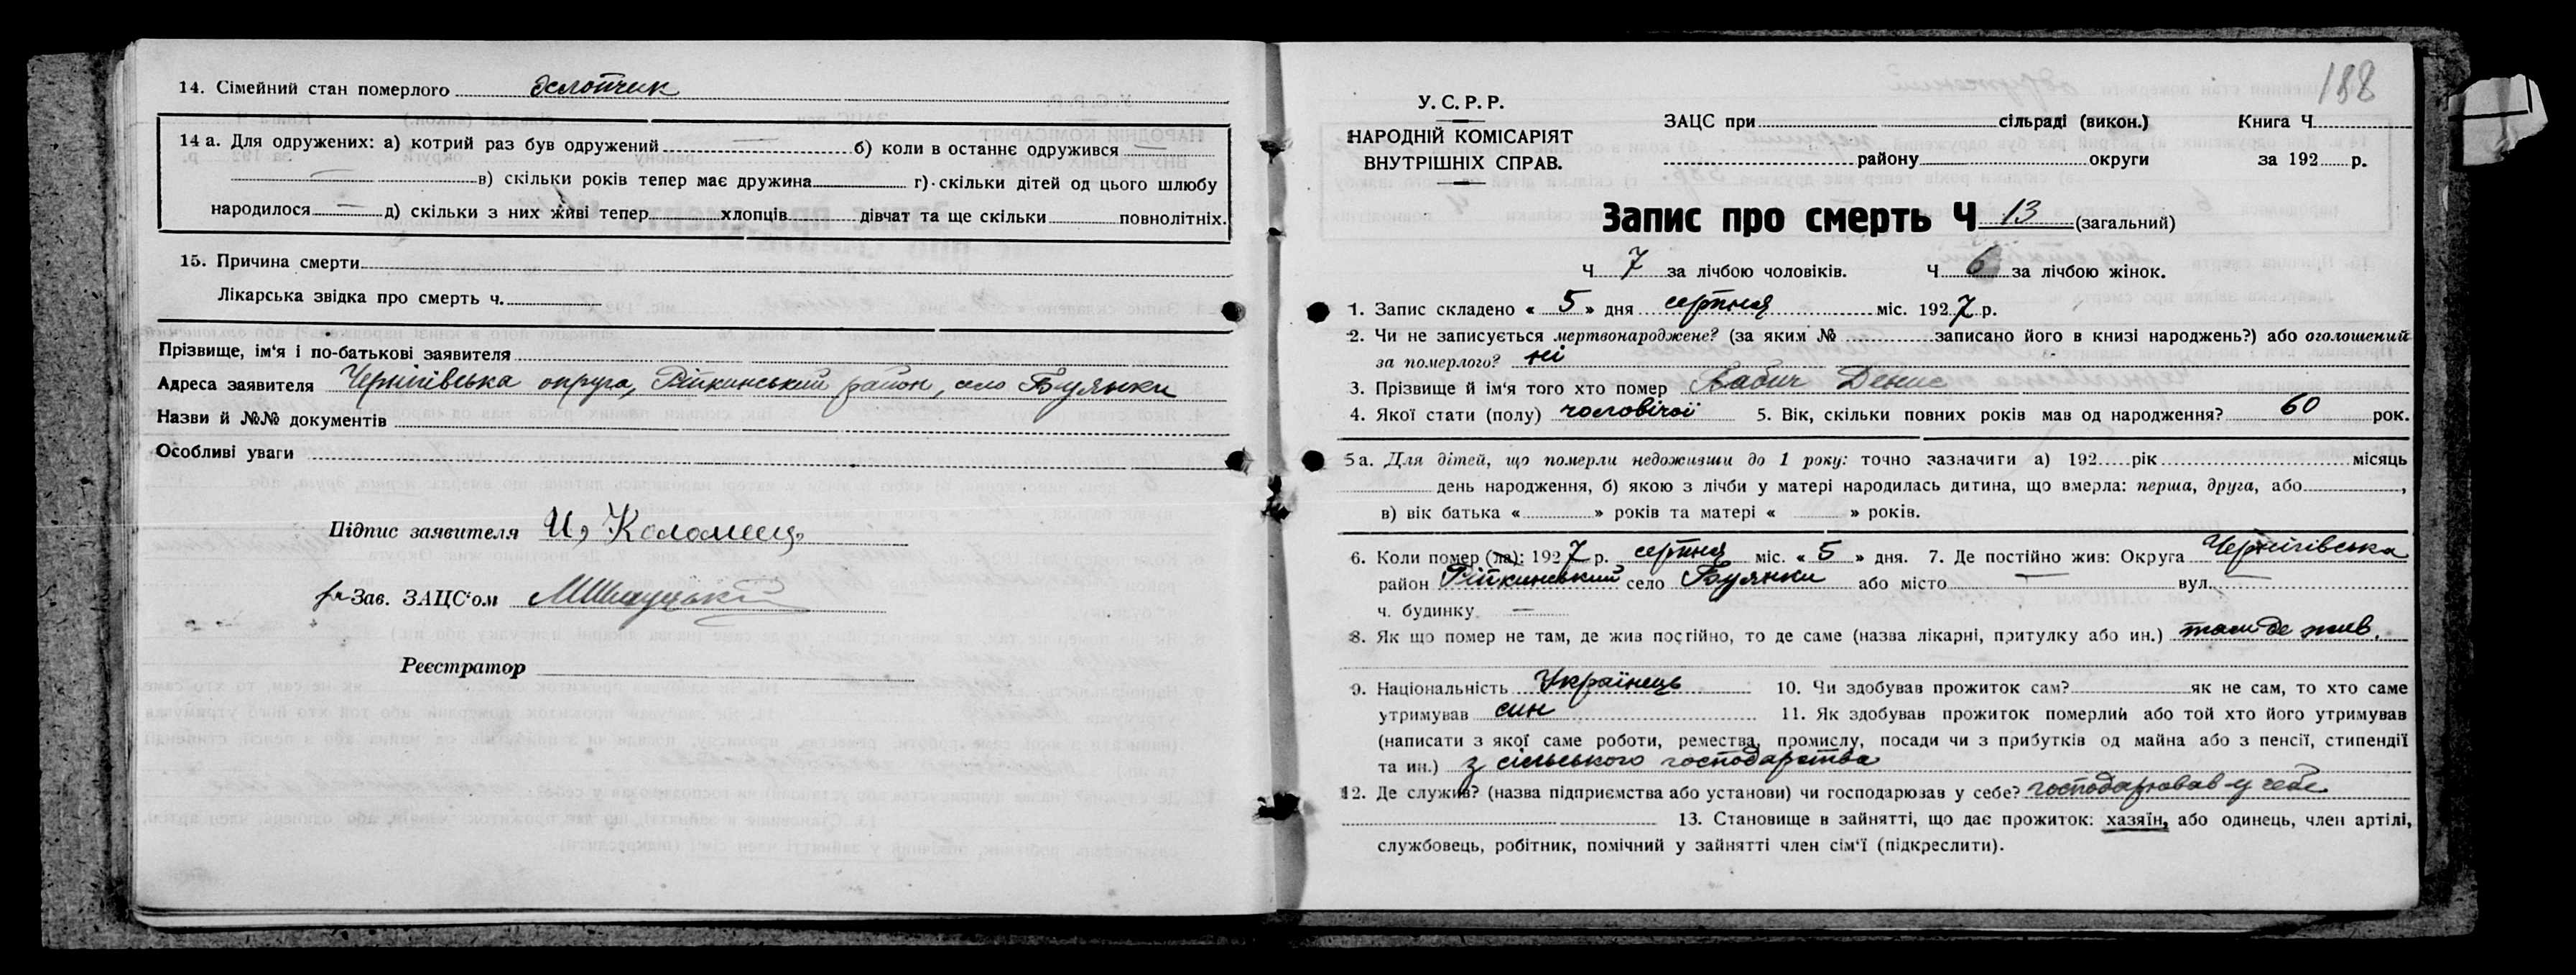 14. Сімейний стан померлого
14 а. Для одружених: а) котрий раз був одружений — б) коли в останнє одружився —
— в) скільки років тепер має дружина г) скільки дітей од цього шлюбу
народилося — д) скільки з них живі тепер хлопців дівчат та ще скільки повнолітніх.
15. Причина смерти
Лікарська звідка про смерть ч.
Прізвище, ім'я і по-батькові заявителя
Адреса заявителя Чернігівська округа, Ріпкинський район, село Буянки
Назви й №№ документів
Особливі уваги
Підпис заявителя И, Коломиец
Зав. ЗАЦС'ом
Реєстратор
188
У. С. Р. Р.
НАРОДНІЙ КОМІСАРІЯТ
ВНУТРІШНІХ СПРАВ.
ЗАЦС при сільраді (викон.) Книга Ч.
району округи за 192 р.
Запис про смерть Ч 13 (загальний)
Ч 7 за лічбою чоловіків. Ч 6 за лічбою жінок.
1. Запис складено « 5 » дня серпня міс. 1927 р.
2. Чи не записується мертвонароджене? (за яким № записано його в книзі народжень?) або оголошений
за померлого? ні
3. Прізвище й ім'я того хто помер Бабич Денис
4. Якої стати (полу) чоловічої 5. Вік, скільки повних років мав од народження? 60 рок.
5 а. Для дітей, що померли недоживши до 1 року: точно зазначити а) 192 рік місяць
день народження, б) якою з лічби у матері народилась дитина, що вмерла: перша, друга, або ,
в) вік батька « » років та матері « » років.
6. Коли помер (ла): 1927 р. серпня міс. « 5 » дня. 7. Де постійно жив: Округа Чернігівська
район Ріпкинський село Буянки або місто — вул. —
ч. будинку —
8. Як що помер не там, де жив постійно, то де саме (назва лікарні, притулку або ин.) там де жив.
9. Національність Українець 10. Чи здобував прожиток сам? як не сам, то хто саме
утримував син 11. Як здобував прожиток померлий або той хто його утримував
(написати з якої саме роботи, ремества, промислу, посади чи з прибутків од майна або з пенсії, стипендії
та ин.) з сільського господарства
12. Де служив? (назва підприємства або установи) чи господарював у себе? господарював у себе
13. Становище в зайнятті, що дає прожиток: хазяїн, або одинець, член артілі,
службовець, робітник, помічний у зайнятті член сім'ї (підкреслити).